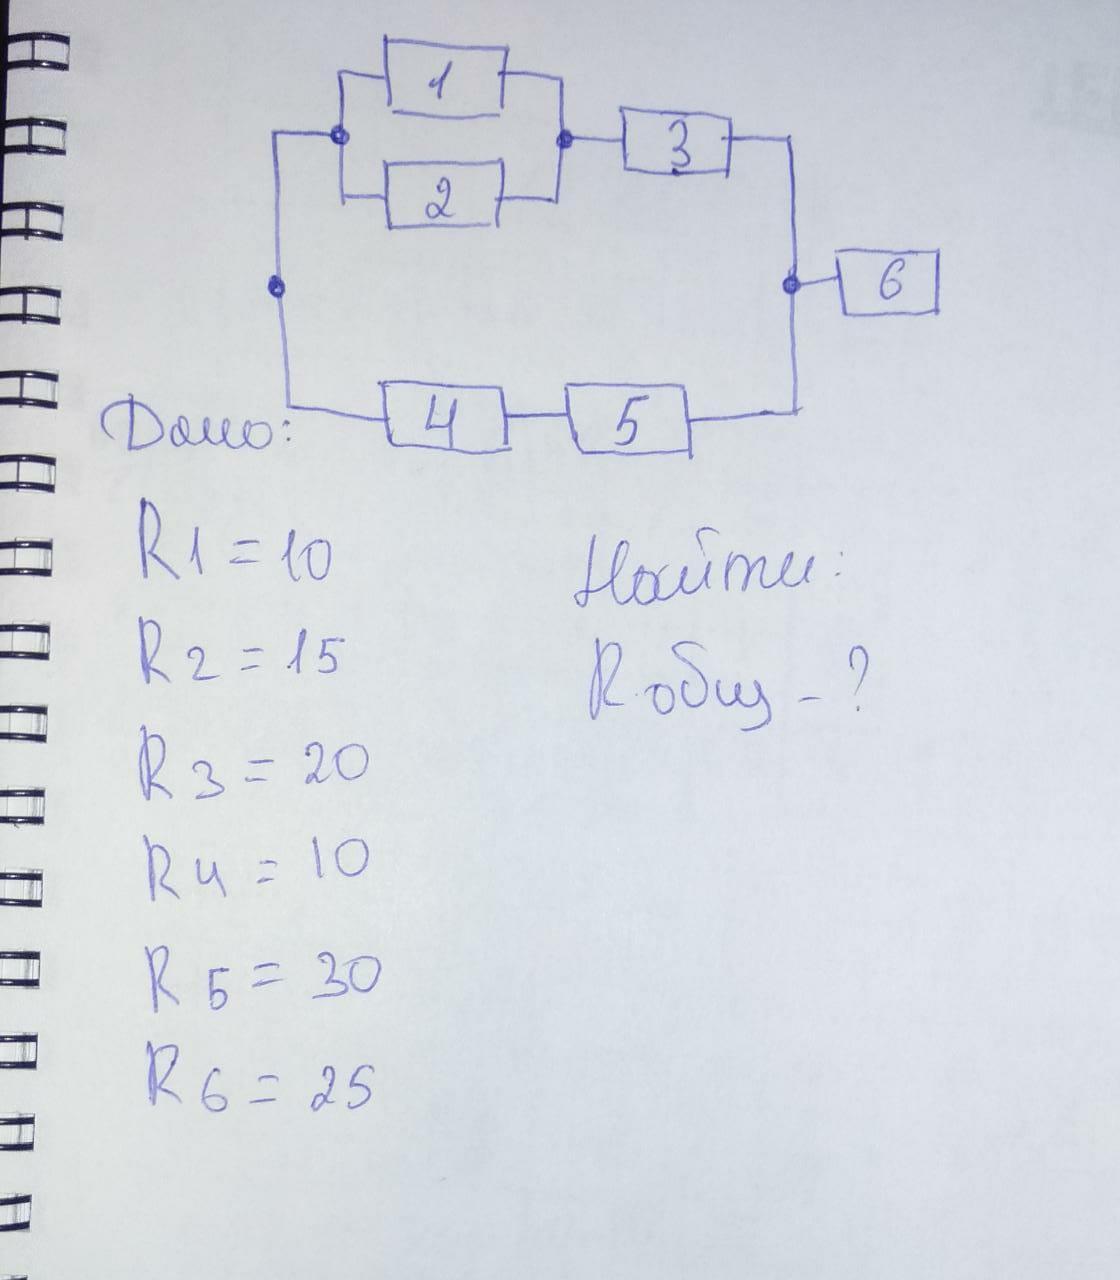 1
2
3
6
4
5
Дано:
R1 = 10
Найти:
R2 = 15
Rобщ - ?
R3 = 20
R4 = 10
R5 = 30
R6 = 25